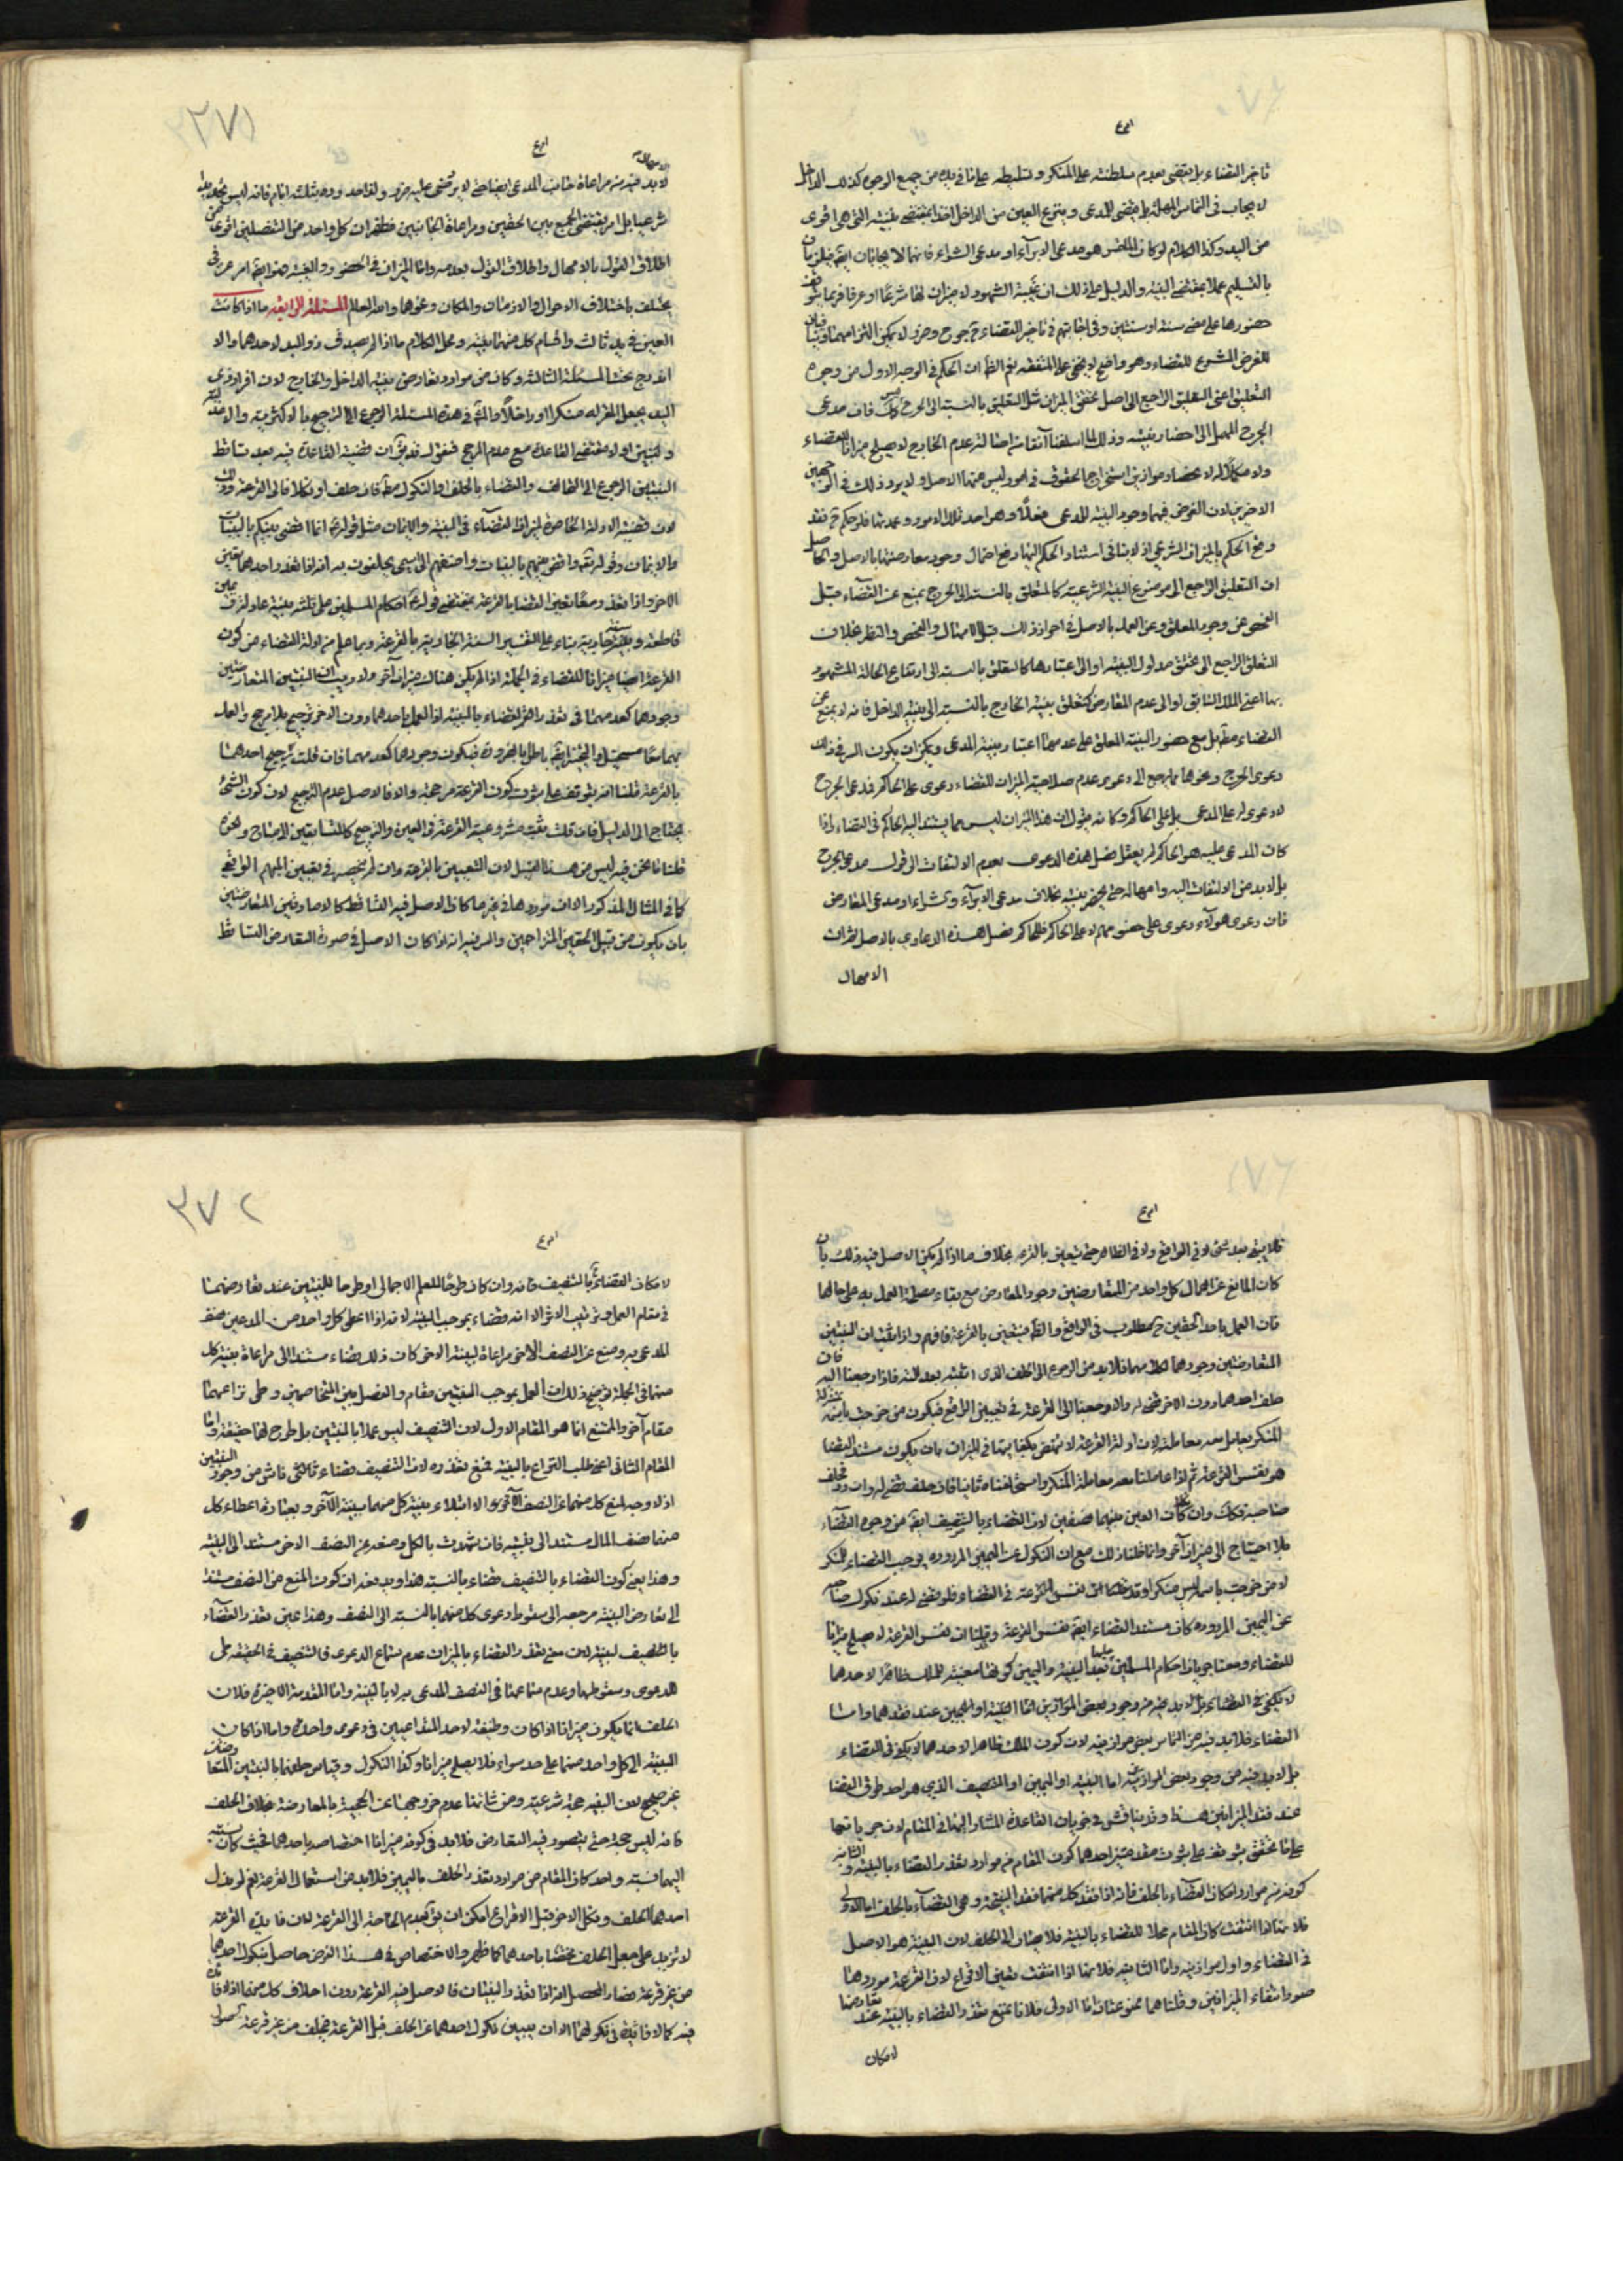 تاخير القضاء بل يقتضى بعدم سلطنته على المنكر وتسليطه على ما فى يده من جميع الوجوه كذلك الداخل
لا يجاب فى التماس المهلة بل يقضى للمدعى وينتزع العين من الداخل اخذا بمقتضى بينته التى هى اقوى
من اليد وكذا الكلام لو كان الملتمس هو مدعى الابراء او مدعى الشراء فانهما لا يجابان ايضا
بالتسليم عملا بمقتضى البينة والدليل على ذلك ان غيبة الشهود لا ميزان لها شرعا او عرفا فربما
حضورها على مضى سنة او سنتين وفى اجابتهم فى تاخير القضاء ح حرج وضرر لا يمكن التزامهما
للغرض المشروع للقضاء وهو واضح لا يخفى على المتفقه نعم الظ ان الحكم فى الوجه الاول من وجوه
التعليق اعنى التعليق الراجع الى اصل تحقق الميزان مثل التعليق بالنسبة الى الجرح كك فان مدعى
الجرح المهمل الى احضار بينته وذلك لما اسلفنا آنفا من اصالة عدم الجارح لا يصلح ميزانا للقضاء
الاخيرين لان الغرض فيهما وجود البينة للمدعى فعلا وهو احد تلك الامور وعمدتها فلو حكم ح فقد
وقع الحكم بالميزان الشرعى اذ لا ينافى استناد الحكم اليها رفع احتمال وجود معارضتها بالاصل والحاصل
ان التعليق الراجع الى موضوع البينة الشرعية كالمتعلق بالنسبة الى الجرح يمنع عن القضاء قبل
الفحص عن وجود المعلق وعن العمل بالاصل فى احراز ذلك قبل الامهال والفحص والنظر بخلاف
التعلق الراجع الى تحقق مدلول البينة او الى اعتبارها كالتعلق بالنسبة الى ارتفاع الحالة المشهود
بها اعنى الملك السابق او الى عدم المعارض كتعلق بينة الخارج بالنسبة الى بينة الداخل فانه لا يمنع عن
القضاء مط بل مع حضور البينة المعلق على عدمها اعتبار بينة المدعى ويمكن ان يكون السر فى ذلك
دعوى الجرح ونحوها مما يرجع الى دعوى عدم صلاحية الميزان للقضاء دعوى على الحاكم فمدعى الجرح
لا دعوى له على المدعى بل على الحاكم وكانه يقول ان هذا الميزان ليس مما يستند اليه الحاكم فى القضاء واذا
كان المدعى عليه هو الحاكم لم يعقل فصل هذه الدعوى بعدم الالتفات الى قول مدعى الجرح
بل لا بد من الالتفات اليه وامهاله حتى يحضر بينته بخلاف مدعى الابراء وشراء او مدعى المعارض
فان دعوى هولاء دعوى على خصومهم لا على الحاكم فللحاكم فصل هذه الدعاوى بالاصل
الامهال
٣٧١
لا بد فيه من مراعاة جانب المدعى ايضا حتى لا يرتضى عليه ضرر ولقد احد وده بثلثة ايام فانه ليس
شرعيا بل امر يقتضى الجمع بين الحقين ومراعاة الجانبين فظهر ان كل واحد من التفصيلين اقوى من
اطلاق القول بالامهال واطلاق القول بعدمه واما الميزان فى الحضور والغيبة فهو ايضا امر عرفى
يختلف باختلاف الاحوال والازمان والمكان ونحوها والله العالم المسئلة الرابعة ما اذا كانت
العين فى يد ثالث واقام كل منهما بينة ومحل الكلام ما اذا لم يصدق ذو اليد لاحدهما والا
اندرج تحت المسئلة الثالثة وكان من موارد تعارض بينة الداخل والخارج لان اقرار ذى
اليد يجعل المقر له منكرا وداخلا والمش فى هذه المسئلة الرجوع الى الترجيح بالاكثرية والاعدلية
ولنبين اولا مقتضى القاعدة مع عدم المرجح فنقول قد يق ان قضية القاعدة فيه بعد تساقط
البينتين الرجوع الى التحالف والقضاء بالحلف او النكول مط فان حلف او نكلا فالى القرعة وذلك
لان قضية الادلة الحاصرة لميزان القضاء فى البينة والايمان مثل قوله انما اقضى بينكم بالبينات
والايمان وقوله تع واقض بينهم بالبينات واضفهم الى اسمى يحلفون به انه اذا تعذر احدهما تعين
الاخر واذا تعذرا معا تعين القضاء بالقرعة بمقتضى قوله احكام المسلمين على ثلثة بينة عادلة او يمين
قاطعة وسنة جارية بناء على تفسير السنة الجارية بالقرعة وبما علم من ادلة القضاء من كون
القرعة ايضا ميزانا للقضاء فى الجملة اذا لم يكن هناك ميزان آخر ولا ريب ان البينتين المتعارضتين
وجودهما كعدمهما فى تعذر القضاء بالبينة اذ العمل باحدهما دون الاخر ترجيح بلا مرجح والعمل
بهما معا مستحيل والتخيير باطل بالضرورة فيكون وجودهما كعدمهما فان قلت ترجيح احدهما
بالقرعة قلنا انه يتوقف على ثبوت كون القرعة مرجحة والا فالاصل عدم الترجيح لان كون الشئ
يحتاج الى الدليل فان قلت ثبتت مشروعية القرعة فى العين والترجيح كالمتسابقين الامتاح ونحوه
قلنا ما نحن فيه ليس من هذا القبيل لان التعيين بالقرعة وان لم ينحصر فى تعيين المبهم الواقعى
كما فى المثال المذكور الا ان موردها فى غير ما كان الاصل فيه التساقط كالاصلين المتعارضين
بان يكون من قبيل الحقين المتزاحمين والسر فيه انه اذا كان الاصل فى صورة التعارض التساقط
فلا يبقى بعد شئ لا فى الواقع ولا فى الظاهر حتى يتعين بالقرعة بخلاف ما اذا لم يكن الاصل فيه ذلك بان
كان المانع عن اعمال كل واحد من المتعارضين وجود المعارض مع بقاء مصلحة العمل به على حالها
فان العمل باحد الحقين ح مطلوب فى الواقع والظ فيتعين بالقرعة فافهم واذا ثبت ان البينتين
المتعارضتين وجودهما كلا وجودهما فلا بد من الرجوع الى الحلف الذى رتبته بعد البينة فاذا رجعنا اليه فان
حلف احدهما دون الاخر قضى له والا رجعنا الى القرعة فى تعيين الواقع فيكون من خرجت باسمه بمنزلة
المنكر يعامل معه معاملته لان ادلة القرعة لا تنهض بكفايتها فى الميزان بان يكون مستند القضاء
هو نفس القرعة ثم اذا عاملنا معه معاملة المنكر واستحلفناه ثانيا فان حلف قضى له وان رد وحلف
صاحبه فكك وان نكلا كان العين بينهما نصفين لان القضاء بالتنصيف ايضا من وجوه القضاء
فلا احتياج الى ميزان آخر وانما قلنا ذلك مع ان النكول عن اليمين المردودة يوجب القضاء للمنكر
لان من خرجت باسمه ليس منكرا وقد قلنا ان نفس القرعة فى القضاء فلو قضى له عند نكول صاحبه
عن اليمين المردودة كان مستند القضاء ايضا نفس القرعة وقلنا ان نفس القرعة لا يصلح ميزانا
للقضاء ومعنى جريان احكام المسلمين عليها بعد البينة واليمين كونها معينة للملك ظاهرا لاحدهما
لا يكفى فى القضاء بل لا بد فيه من وجود بعض الموازين اما البينة او اليمين عند فقدهما واما
القضاء فلا بد فيه من التماس بعض موازينه لان كون الملك ظاهرا لاحدهما لا يكفى فى القضاء
بل لا بد فيه من وجود بعض الموازين اما البينة او اليمين او التنصيف الذى هو احد طرق القضا
عند فقد الميزانين هذا وقد يناقش فى جريان القاعدة المشار اليها فى المقام لان جريانها
على ما تحقق يتوقف على ثبوت مقدمتين احدهما كون المقام من موارد تعذر القضاء بالبينة والثانية
كونه من موارد امكان القضاء بالحلف فانه اذا فقد كل منهما فقد النتيجة وهى القضاء بالحلف اما الاولى
فلانها اذا انتفت كان المقام محلا للقضاء بالبينة فلا يصار الى الحلف لان البينة هو الاصل
فى القضاء واول موازينه واما الثانية فلانها اذا انتفت تعين الاقراع لان القرعة موردها
صورة انتفاء الميزانين وقلناهما ممنوعتان اما الاولى فلانا نمنع تعذر القضاء بالبينة عند تعارضهما
لامكان
٣٧٢
لامكان القضاء بالتنصيف فانه وان كان طرحا للعلم الاجمالى او طرحا للبينتين عند تعارضهما
فى مقام العمل وترتيب الاثر الا انه قضاء بموجب البينة لانه اذا اعطى كل واحد من المدعيين نصف
المدعى به ومنع عن النصف الاخر مراعاة لبينة الاخر كان ذلك قضاء مستندا الى مراعاة بينة كل
منهما فى الجملة توضيح ذلك ان العمل بموجب البينتين مقام والفصل بين المتخاصمين وطى نزاعهما
مقام آخر والممتنع انما هو المقام الاول لان التنصيف ليس عملا بالبينتين بل طرح لهما حقيقة واما
المقام الثانى اعنى طلب النزاع بالبينة فنمنع تعذره لان التنصيف قضاء ناش من وجود البينتين
اذ لا وجه لمنع كل منهما عن النصف الآخر الا ابتلاء بينة كل منهما ببينة الآخر وبعبارة اعطاء كل
منهما نصف المال مستند الى بينته فان شهدت بالكل ومنعه عن النصف الاخر مستند الى البينة
وهذا يعنى كون القضاء بالتنصيف قضاء بالبينة هذا ويدفعه ان كون المنع من النصف مستندا
الى تعارض البينة مرجعه الى سقوط دعوى كل منهما بالنسبة الى النصف وهذا عين تعذر القضاء
بالنصف لبينة لان معنى تعذر القضاء بالميزان عدم سماع الدعوى فالتنصيف فى الحقيقة طى
الدعوى وسقوطها وعدم سماعها فى النصف المدعى به لا بالبينة واما المقدمة الاخيرة فلان
الحلف انما يكون ميزانا اذا كان وظيفة لاحد المتداعيين فى دعوى واحدة واما اذا كان
البينة الى كل واحد منهما على حد سواء فلا يصلح ميزانا وكذا النكول وقياس حلفهما بالبينتين المتعارضتين
غير صحيح لان البينة حجة شرعية ومن شانها عدم خروجها عن الحجية بالمعارضة بخلاف الحلف
فانه ليس حجة حتى يتصور فيه التعارض فلا بد فى كونه ميزانا اختصاصه باحدهما فحيث كان نسبته
اليهما نسبة واحدة كان المقام من موارد تعذر الحلف باليمين فلا بد من استعمال القرعة نعم لو بذل
احدهما الحلف ونكل الاخر قبل الاقراع امكن ان يق بعدم الحاجة الى القرعة لان فايدة القرعة
لا تزيد على جعل الحلف مختصا باحدهما كما ظهر والاختصاص فى هذا الغرض حاصل بنكول احدهما
من غير قرعة فصار المحصل انه اذا تعذر البينات فالاصل فيه القرعة دون احلاف كل منهما اذ لا فائدة
فيه كما لا فائدة فى نكولهما الا ان يبين نكول احدهما عن الحلف قبل القرعة فيحلف من غير قرعة